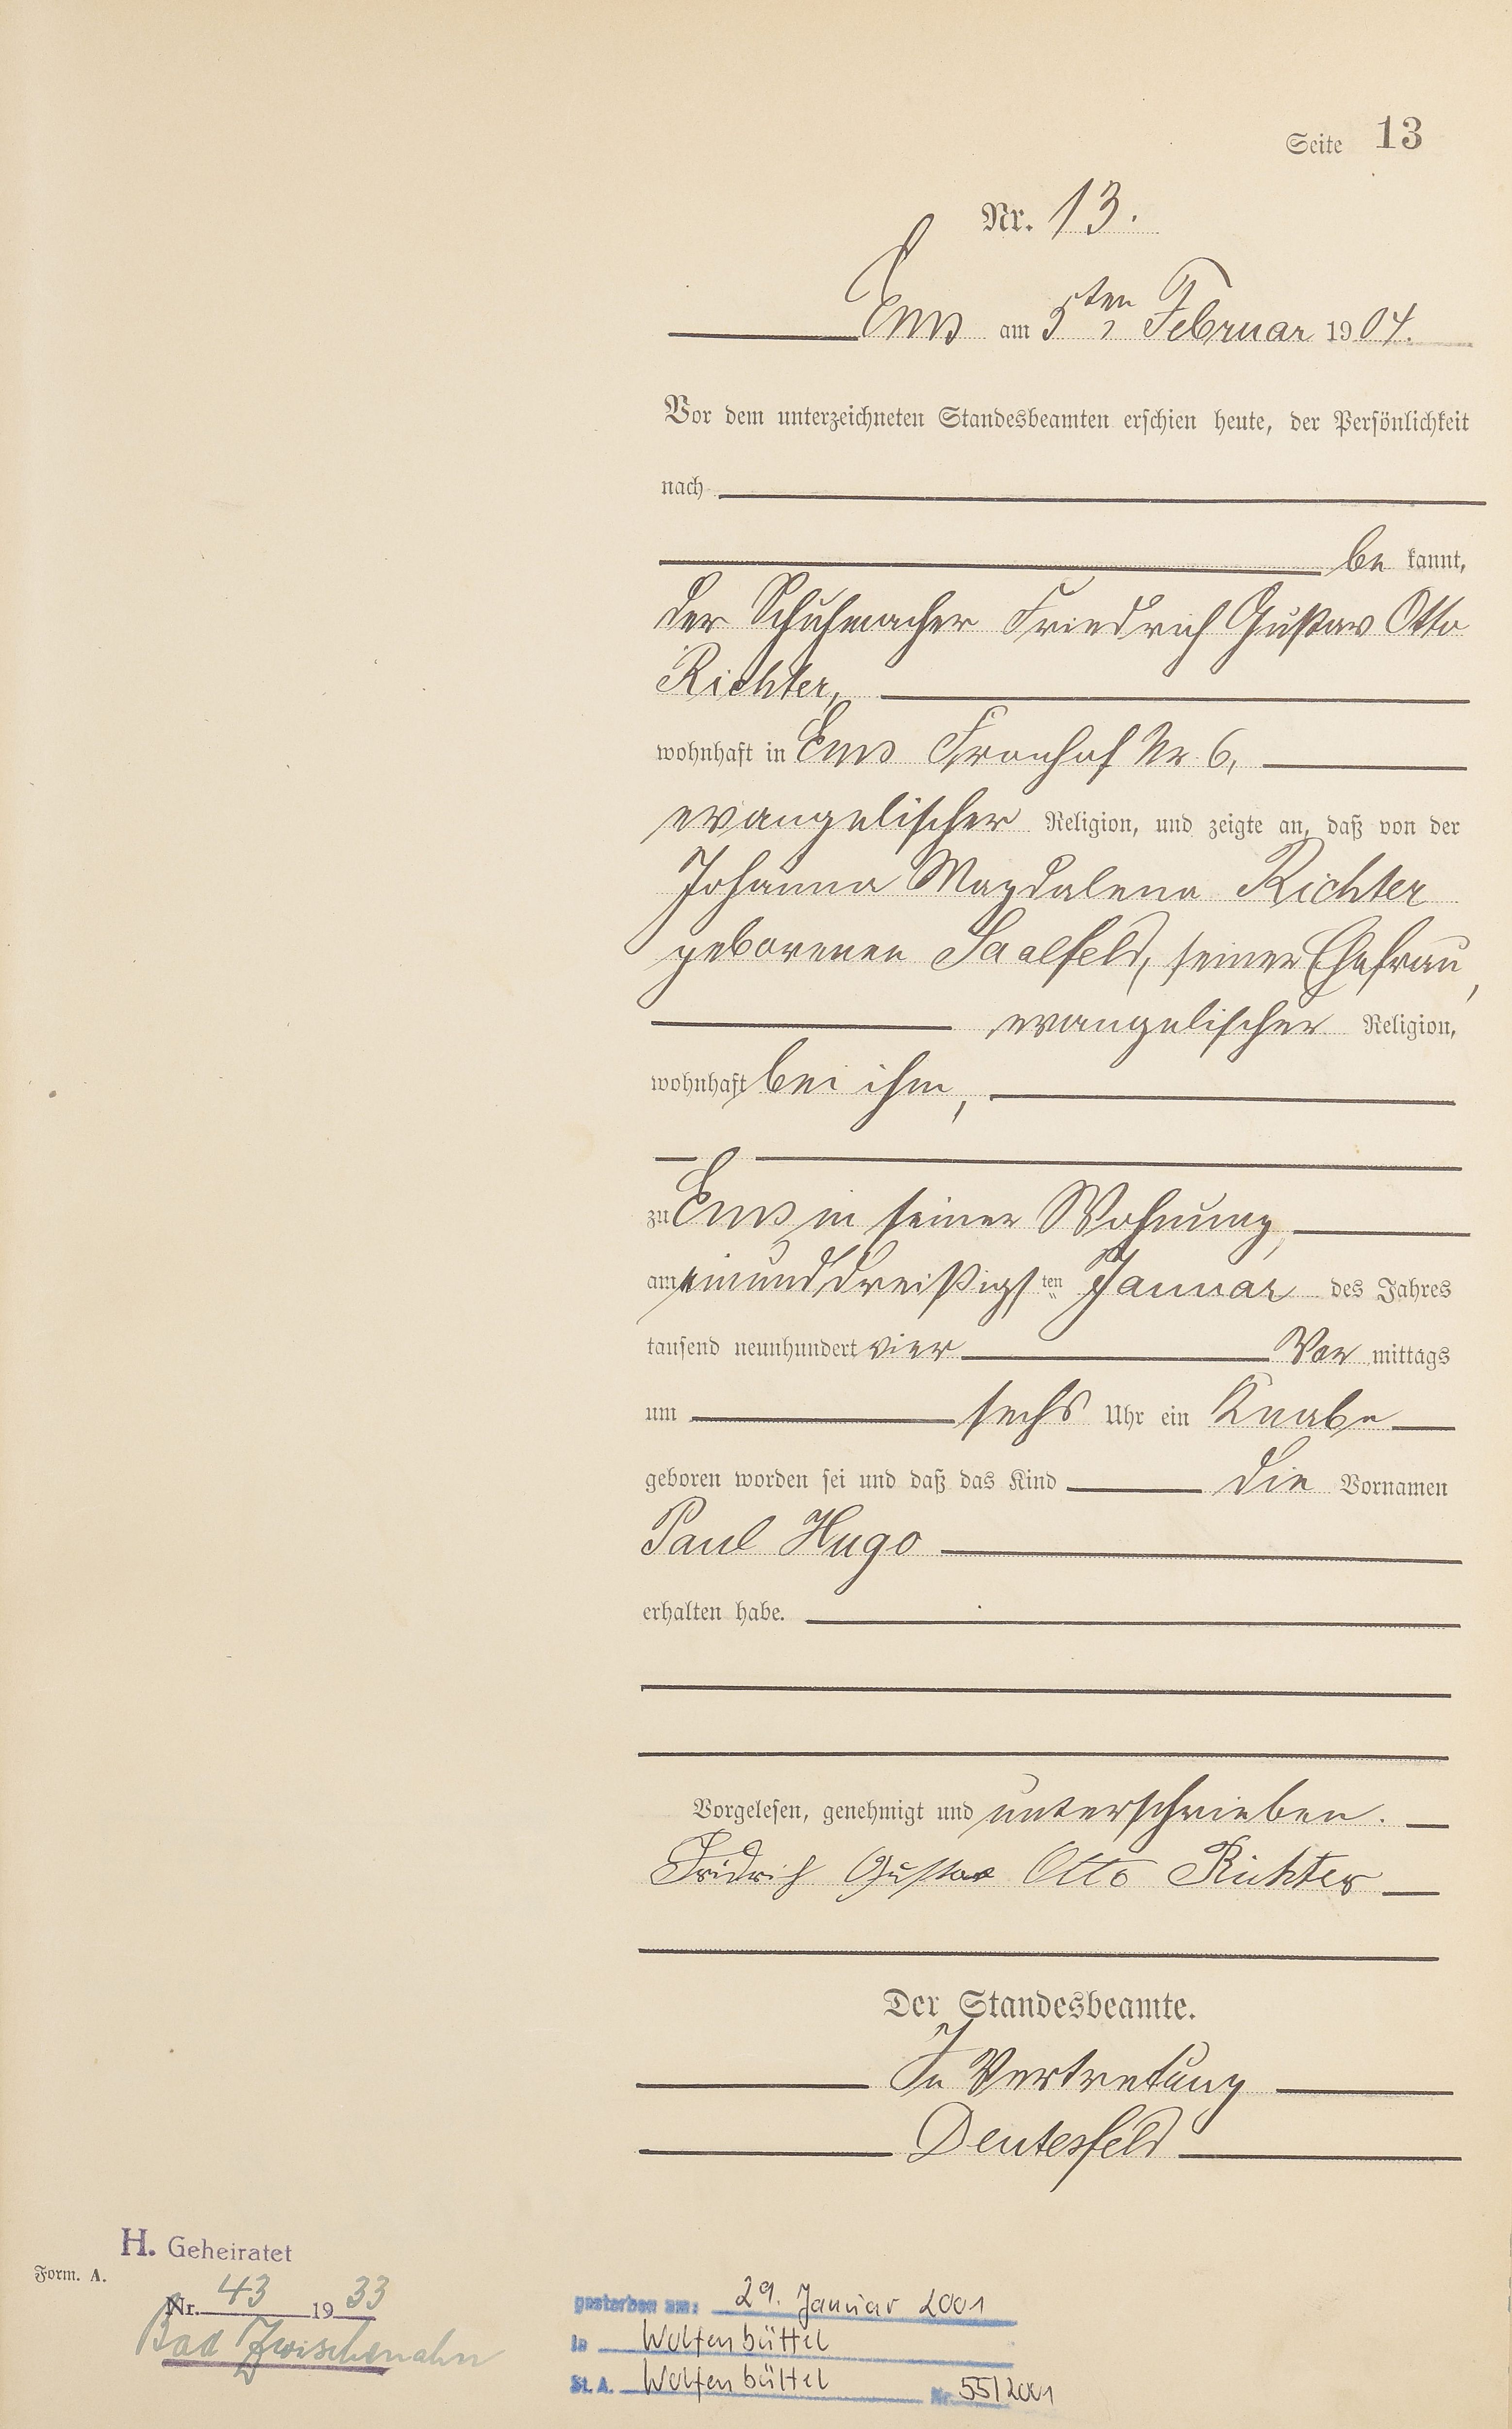 Seite 13
Nr. 13.
Ems am 5ten Februar 1904.
Vor dem unterzeichneten Standesbeamten erschien heute, der Persönlichkeit
nach
be kannt,
der Schuhmacher Friedrich Gustav Otto
Richter,
wohnhaft in Ems Fronhof Nr. 6,
evangelischer Religion, und zeigte an, daß von der
Johanna Magdalena Richter
geborenen Saalfeld, seiner Ehefrau,
evangelischer Religion,
wohnhaft bei ihm,
zu Ems in seiner Wohnung,
am einunddreißigsten Januar des Jahres
tausend neunhundert vier Vor mittags
um sechs Uhr ein Knabe
geboren worden sei und daß das Kind die Vornamen
Paul Hugo
erhalten habe.
Vorgelesen, genehmigt und unterschrieben.
Fridrich Gustav Otto Richter
Der Standesbeamte.
In Vertretung
Deutesfeld
H. Geheiratet
Form. A.
Nr. 43 1933
Bad Zwischenahn
gestorben am: 29. Januar 2001
in Wolfenbüttel
St. A. Wolfenbüttel Nr. 55/2001